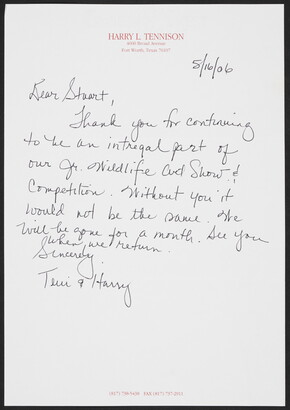 HARRY L. TENNISON
Fort Worth, Texas 76107
5/16/06
Dear Stuart,
Thank you for continuing
to be an intregal part of
our Jr. Wildlife Art Show &
Competition. Without you it
would not be the same. We
will be gone for a month. See you
when we return.
Sincerely,
Teri & Harry